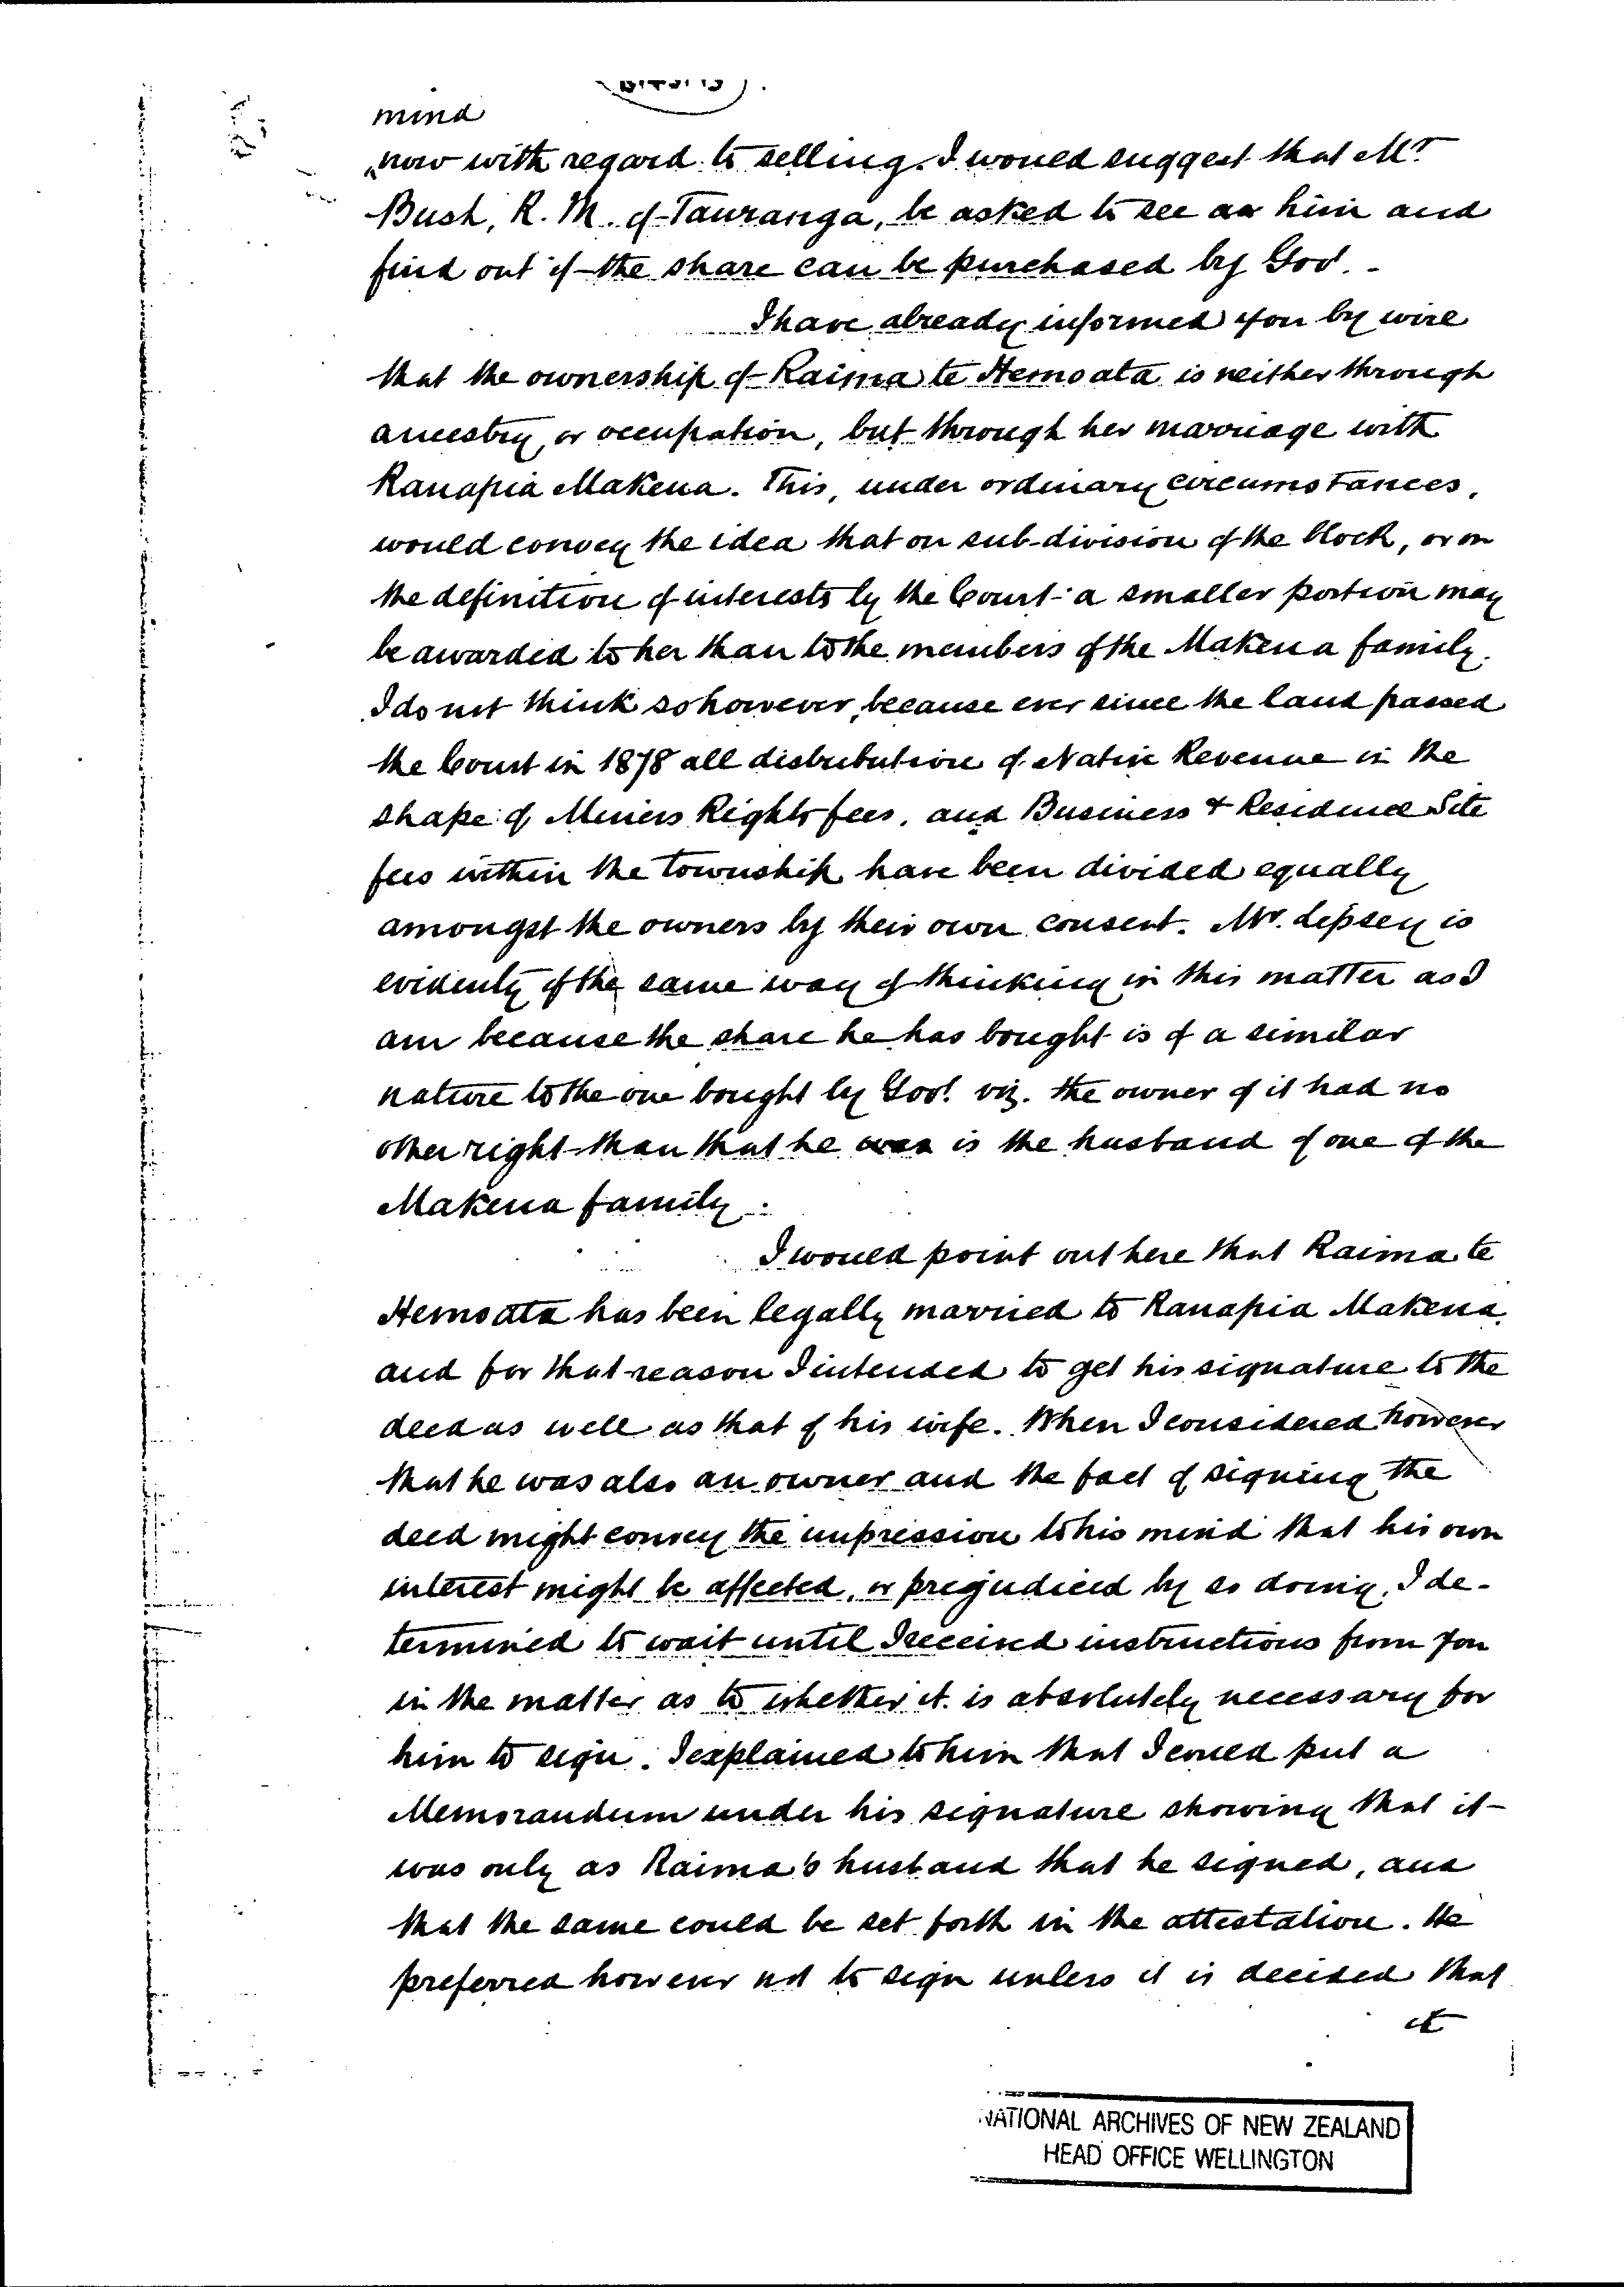 mind
now with regard to selling. I would suggest that Mr.
Bush, R. M. of Tauranga, be asked to see him and
find out if the share can be purchased by Govt. -
I have already informed you by wire
that the ownership of Raima te Hemoata is neither through
ancestry, or occupation, but through her marriage with
Ranapia Makena. This, under ordinary circumstances,
would convey the idea that on sub-division of the block, or on
the definition of interests by the Court a smaller portion may
be awarded to her than to the members of the Makena family.
I do not think so however, because ever since the land passed
the Court in 1878 all distribution of Native Revenue in the
shape of Miners Rights fees, and Business & Residence Site
fees within the township have been divided equally
amongst the owners by their own consent. Mr. Lipsey is
evidently of the same way of thinking in this matter as I
am because the share he has bought is of a similar
nature to the one bought by Govt. viz. the owner of it had no
other right than that he was is the husband of one of the
Makena family.
I would point out here that Raima te
Hemoata has been legally married to Ranapia Makena
and for that reason I intended to get his signature to the
deed as well as that of his wife. When I considered however
that he was also an owner and the fact of signing the
deed might convey the impression to his mind that his own
interest might be affected, or prejudiced by so doing, I de-
termined to wait until I received instructions from you
in the matter as to whether it is absolutely necessary for
him to sign. I explained to him that I could put a
Memorandum under his signature showing that it
was only as Raima's husband that he signed, and
that the same could be set forth in the attestation. He
preferred however not to sign unless it is decided that
it
NATIONAL ARCHIVES OF NEW ZEALAND
HEAD OFFICE WELLINGTON